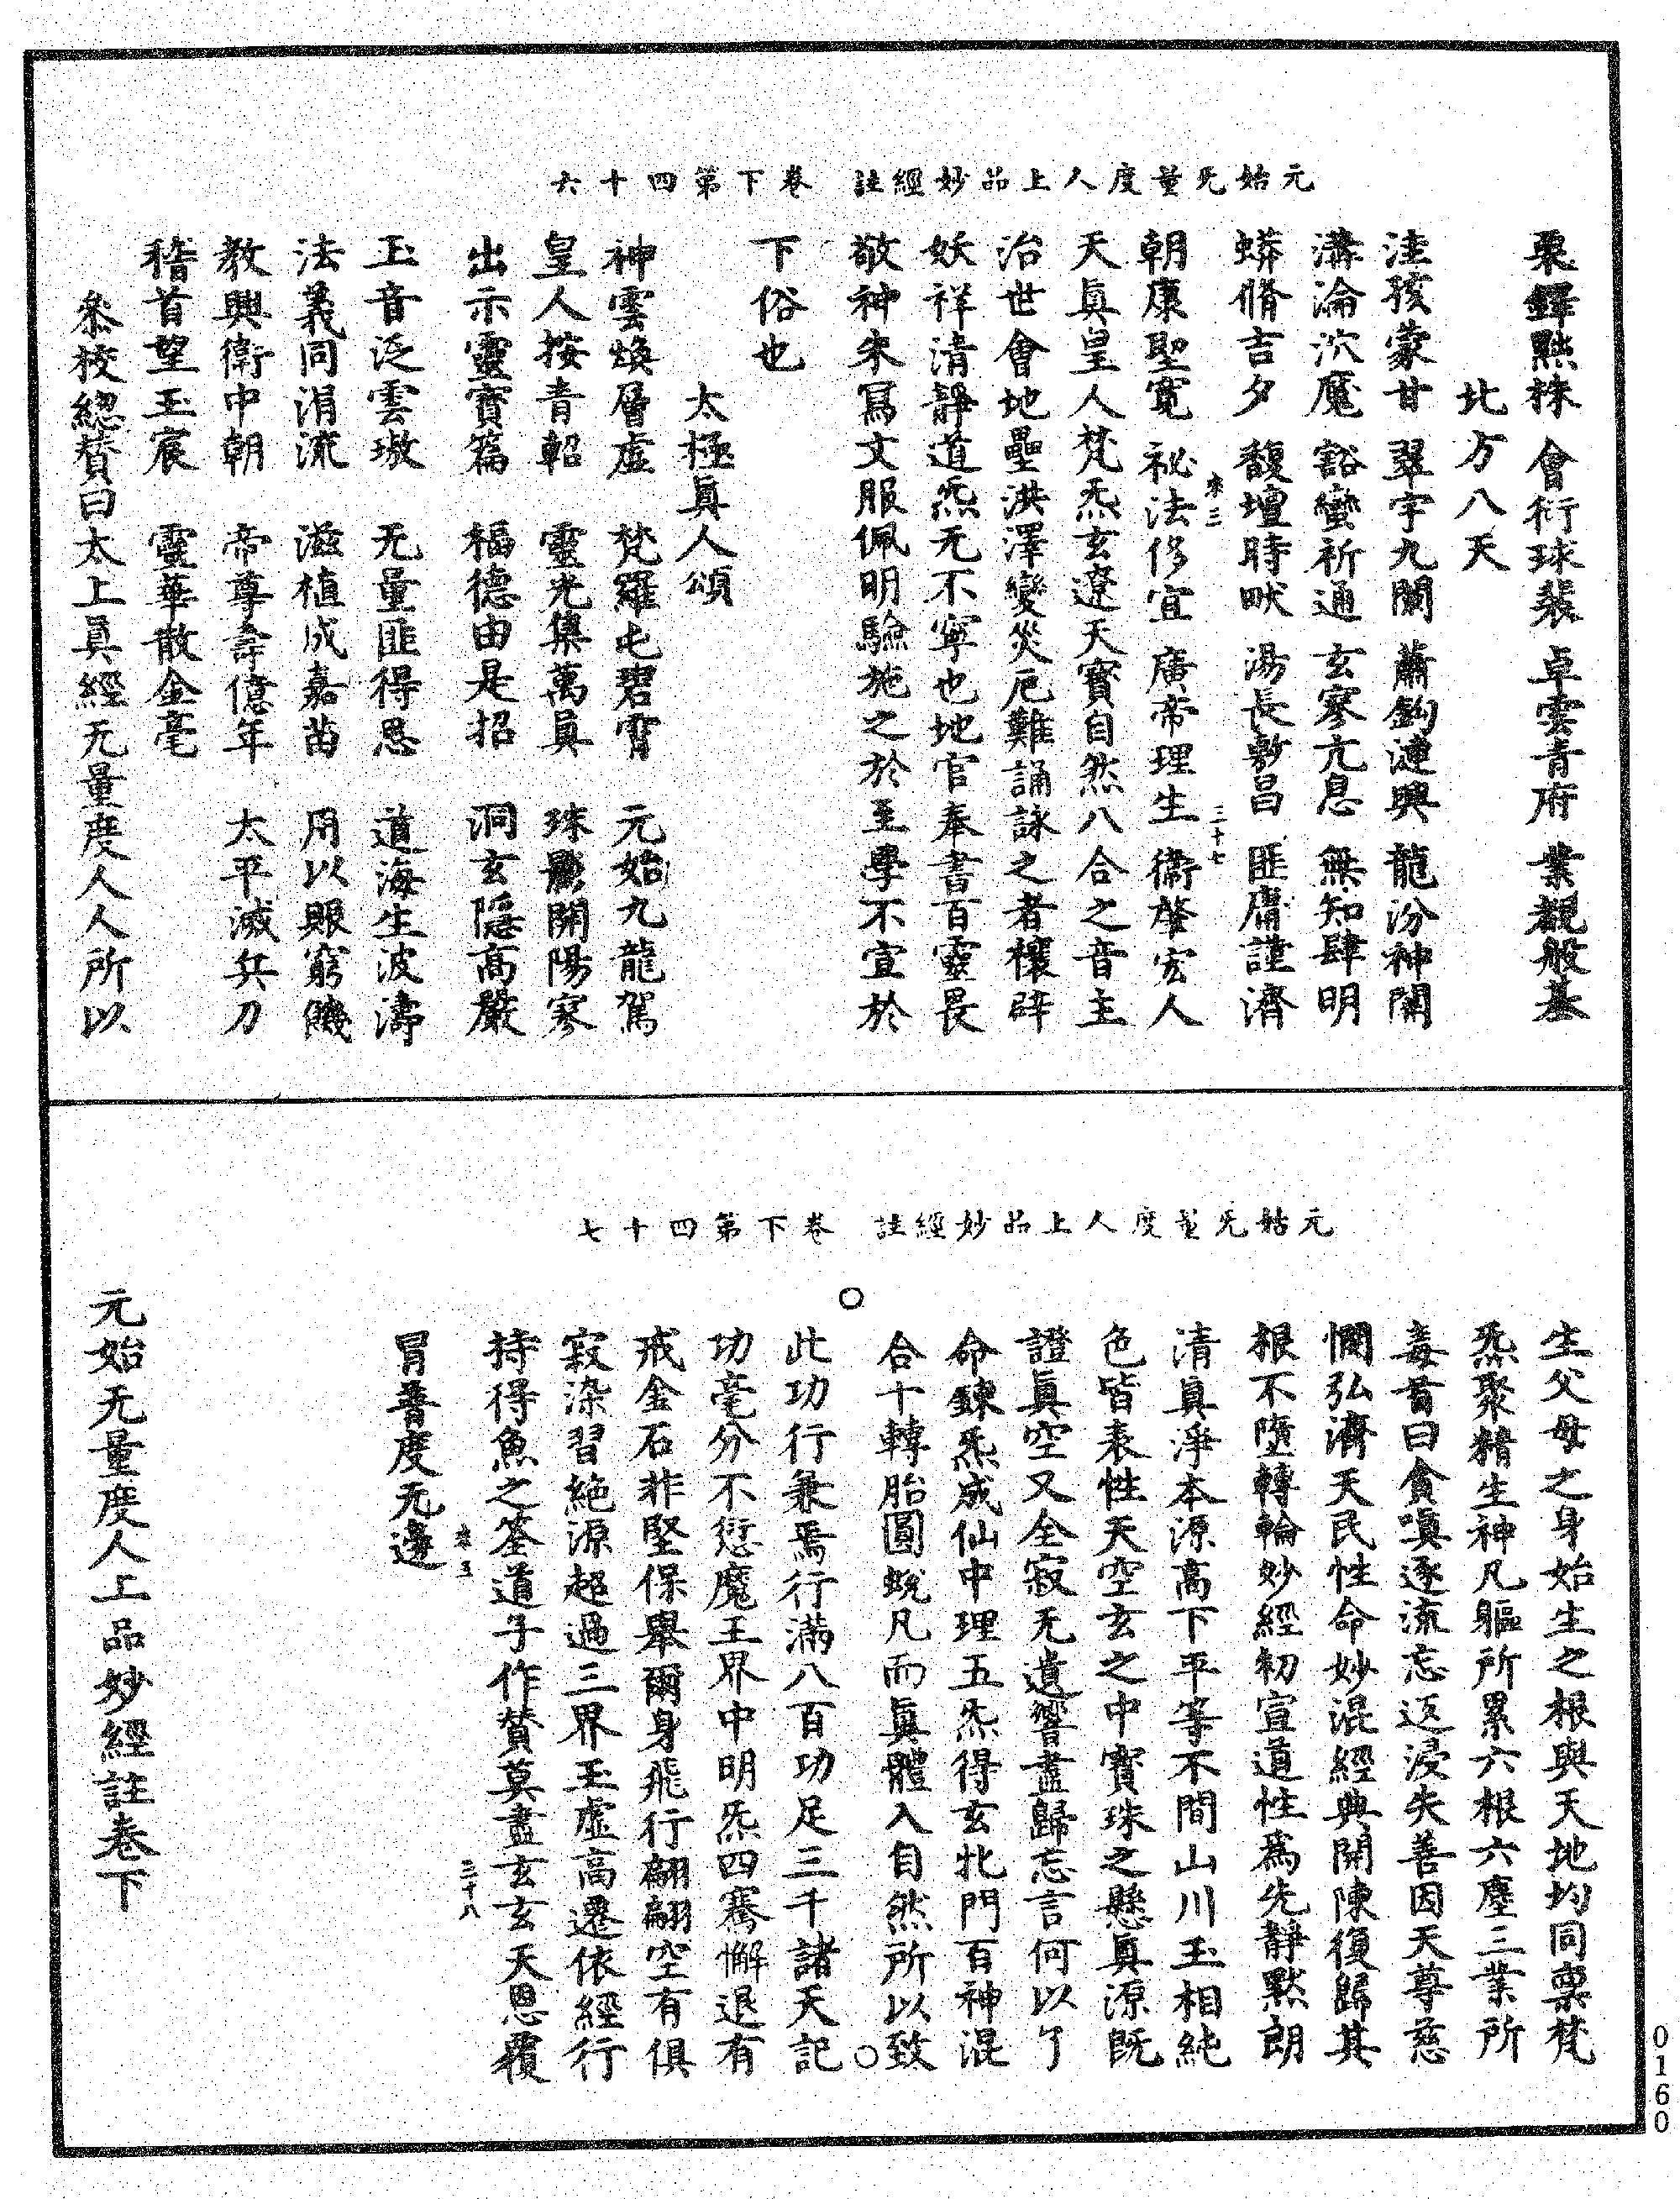 元始无量度人上品妙經註 卷下第四十六
栗鐸㸃株 會衍球裴 卓雲青府 業覩般基
北方八天
洼孩蒙甘 翠宇九闕 蕭鈎漣興 龍汾神開
溝淪沉魔 豁蠻祈通 玄寥亢息 無知肆明
蟒脩吉夕 馥壇時畎 湯長敷昌 匪庸謹濟
來三 三十七
朝康聖寛 祕法修宜 廣帝理生 衛肇宏人
天眞皇人梵炁玄遼天寳自然八合之音主
治世會地壘洪澤變災厄難誦詠之者穰辟
妖祥清靜道炁无不寧也地官奉書百靈畏
敬神朱冩文服佩明驗施之於至學不宣於
下俗也
太極眞人頌
神雲煥層虛 梵羅屯碧霄 元始九龍駕
皇人按青軺 靈光集萬眞 珠影開陽寥
出示靈寳篇 福德由是招 洞玄隱高嚴
玉音泛雲璈 无量匪得思 道海生波濤
法義同涓流 滋植成嘉苗 用以賑窮饑
教興衛中朝 帝尊壽億年 太平滅兵刀
稽首望玉宸 靈華散金毫
叅校緫賛曰太上眞經无量度人人所以
元始无量度人上品妙經註 卷下第四十七
生父母之身始生之根與天地均同禀梵
炁聚精生神凡軀所累六根六塵三業所
毒昔曰貪嗔逐流忘返浸失善因天尊慈
憫弘濟天民性命妙混經典開陳復歸其
根不墮轉輪妙經初宣道性爲先靜黙朗
清眞淨本源高下平等不間山川玉相純
色皆表性天空玄之中寳珠之懸眞源旣
證眞空又全寂无遺響盡歸忘言何以了
命錬炁成仙中理五炁得玄牝門百神混
合十轉胎圓蛻凡而眞體入自然所以致
此功行兼焉行滿八百功足三千諸天記
功毫分不愆魔王界中明炁四騫懈退有
戒金石非堅保舉爾身飛行翩翩空有俱
寂染習絶源超過三界玉虛高遷依經行
持得魚之筌道子作賛莫盡玄玄天恩覆
來五 三十八
冐普度无邊
元始无量度人上品妙經註卷下
0160